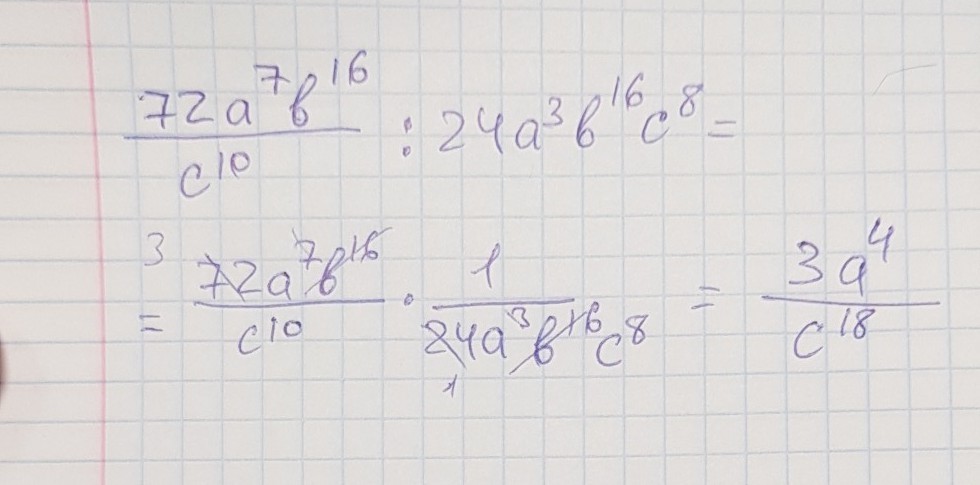 72a⁷b¹⁶/c¹⁰ : 24a³b¹⁶c⁸ =
= 3 72a⁷b¹⁶/c¹⁰ · 1/24a³b¹⁶c⁸ 1 = 3a⁴/c¹⁸